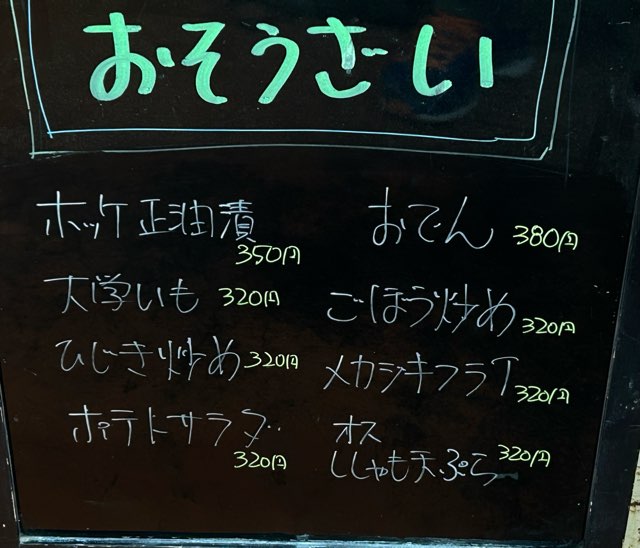 おそうざい
ホッケ正油漬
350円
大学いも 320円
ひじき炒め 320円
ポテトサラダ
320円
おでん 380円
ごぼう炒め 320円
メカジキフライ 320円
オス
ししゃも天ぷら 320円